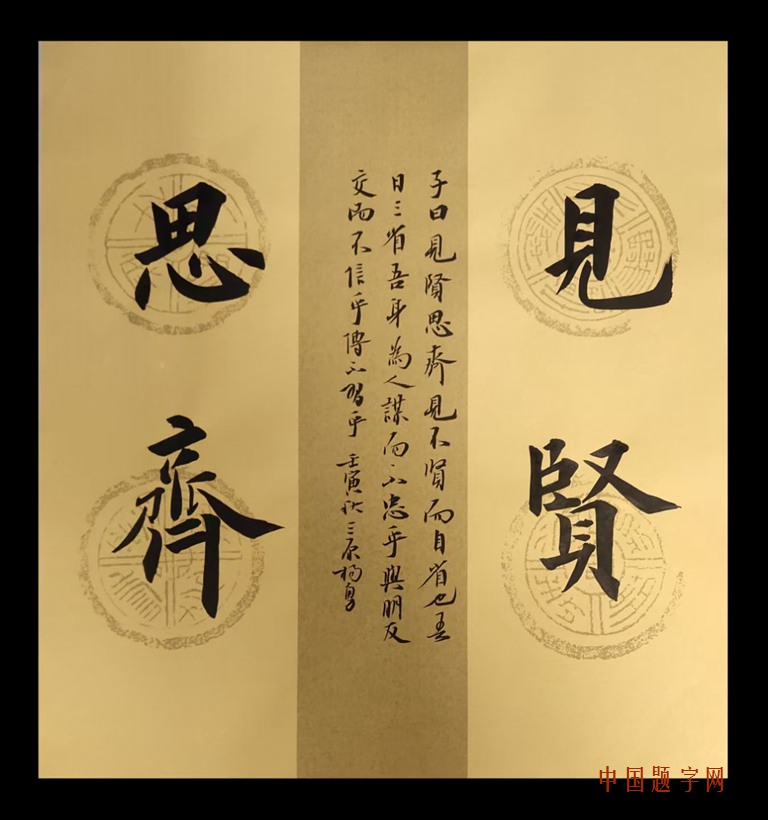 見賢
子曰見賢思齊見不賢而自省也吾
日三省吾身為人謀而不忠乎與朋友
交而不信乎傳不習乎 壬寅秋三原楊勇
思齊
中国题字网